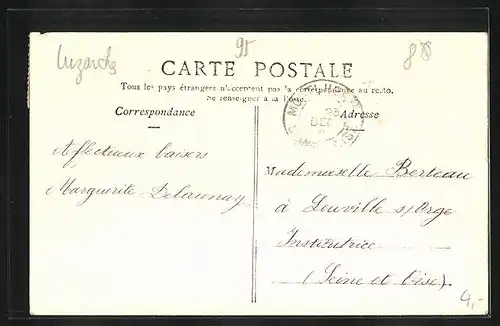 Luzarches
95
8
CARTE POSTALE
Tous les pays étrangers n'acceptent pas la correspondance au recto.
Se renseigner à la Poste.
Correspondance
Adresse
25
DEC
Affectueux baisers
Marguerite Delaunay
Mademoiselle Berteau
à Leuville s/Orge
Institutrice
(Seine et Oise)
4,-